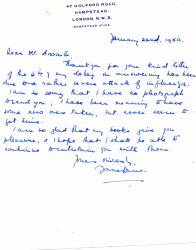 47 HOLFORD ROAD,
HAMPSTEAD,
LONDON, N.W.3.
January 22nd, 1956.
Dear Mr.
Thank you for your kind letter
of the 6th; my delay in answering has been
due to a rather severe attack of influenza.
I am so sorry that I have no photograph
to send you; I have been meaning to have
some new ones taken, but never seem to
get time.
I am so glad that my books give you
pleasure, & hope that I shall be able to
continue to entertain you with them.
Yours sincerely,